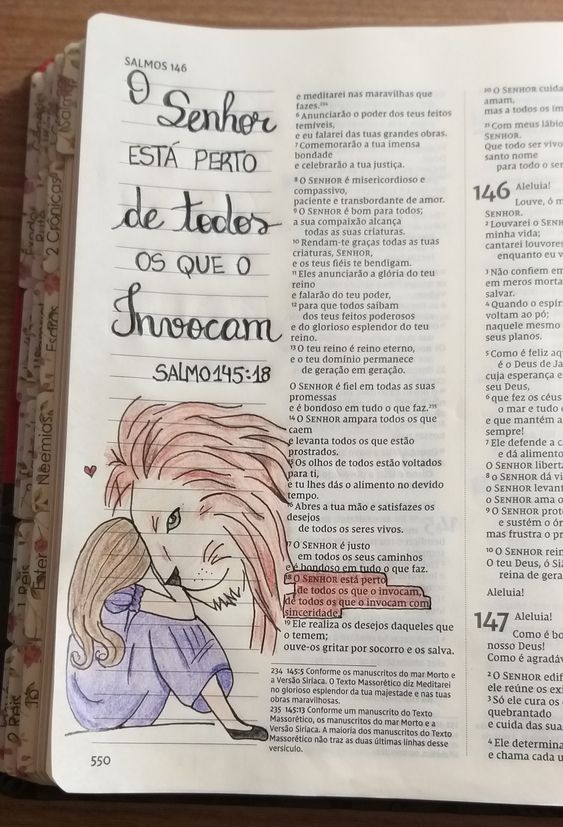 SALMOS 146
O
Senhor
ESTÁ PERTO
de todos
OS QUE O
Invocam
SALMO 145:18
e meditarei nas maravilhas que
fazes.²³⁴
⁶ Anunciarão o poder dos teus feitos
temíveis,
e eu falarei das tuas grandes obras.
⁷ Comemorarão a tua imensa
bondade
e celebrarão a tua justiça.
⁸ O SENHOR é misericordioso e
compassivo,
paciente e transbordante de amor.
⁹ O SENHOR é bom para todos;
a sua compaixão alcança
todas as suas criaturas.
¹⁰ Rendam-te graças todas as tuas
criaturas, SENHOR,
e os teus fiéis te bendigam.
¹¹ Eles anunciarão a glória do teu
reino
e falarão do teu poder,
¹² para que todos saibam
dos teus feitos poderosos
e do glorioso esplendor do teu
reino.
¹³ O teu reino é reino eterno,
e o teu domínio permanece
de geração em geração.
O SENHOR é fiel em todas as suas
promessas
e é bondoso em tudo o que faz.²³⁵
¹⁴ O SENHOR ampara todos os que
caem
e levanta todos os que estão
prostrados.
¹⁵ Os olhos de todos estão voltados
para ti,
e tu lhes dás o alimento no devido
tempo.
¹⁶ Abres a tua mão e satisfazes os
desejos
de todos os seres vivos.
¹⁷ O SENHOR é justo
em todos os seus caminhos
e é bondoso em tudo o que faz.
¹⁸ O SENHOR está perto
de todos os que o invocam,
de todos os que o invocam com
sinceridade.
¹⁹ Ele realiza os desejos daqueles que
o temem;
ouve-os gritar por socorro e os salva.
234 145:5 Conforme os manuscritos do mar Morto e
a Versão Siríaca. O Texto Massorético diz Meditarei
no glorioso esplendor da tua majestade e nas tuas
obras maravilhosas.
235 145:13 Conforme um manuscrito do Texto
Massorético, os manuscritos do mar Morto e a
Versão Siríaca. A maioria dos manuscritos do Texto
Massorético não traz as duas últimas linhas desse
versículo.
550
²⁰ O SENHOR cuida
amam,
mas a todos os ím
²¹ Com meus lábio
SENHOR.
Que todo ser vivo
santo nome
para todo o ser
146 Aleluia!
Louve, ó m
SENHOR.
² Louvarei o SENH
minha vida;
cantarei louvores
enquanto eu v
³ Não confiem em
em meros morta
salvar.
⁴ Quando o espír
voltam ao pó;
naquele mesmo
seus planos.
⁵ Como é feliz aq
é o Deus de Ja
cuja esperança e
seu Deus,
⁶ que fez os céus
o mar e tudo
e que mantém a
sempre!
⁷ Ele defende a c
e dá alimento
O SENHOR libert
⁸ o SENHOR dá vi
o SENHOR levan
o SENHOR ama o
⁹ O SENHOR prot
e sustém o ór
mas frustra o pr
¹⁰ O SENHOR rein
O teu Deus, ó Si
reina de gera
Aleluia!
147 Aleluia!
Como é bo
nosso Deus!
Como é agradáv
² O SENHOR edif
ele reúne os exi
³ Só ele cura os
quebrantado
e cuida das sua
⁴ Ele determina
e chama cada u
2 Crônicas
Esdras
Neemias
Ester
1 Reis
2 Reis